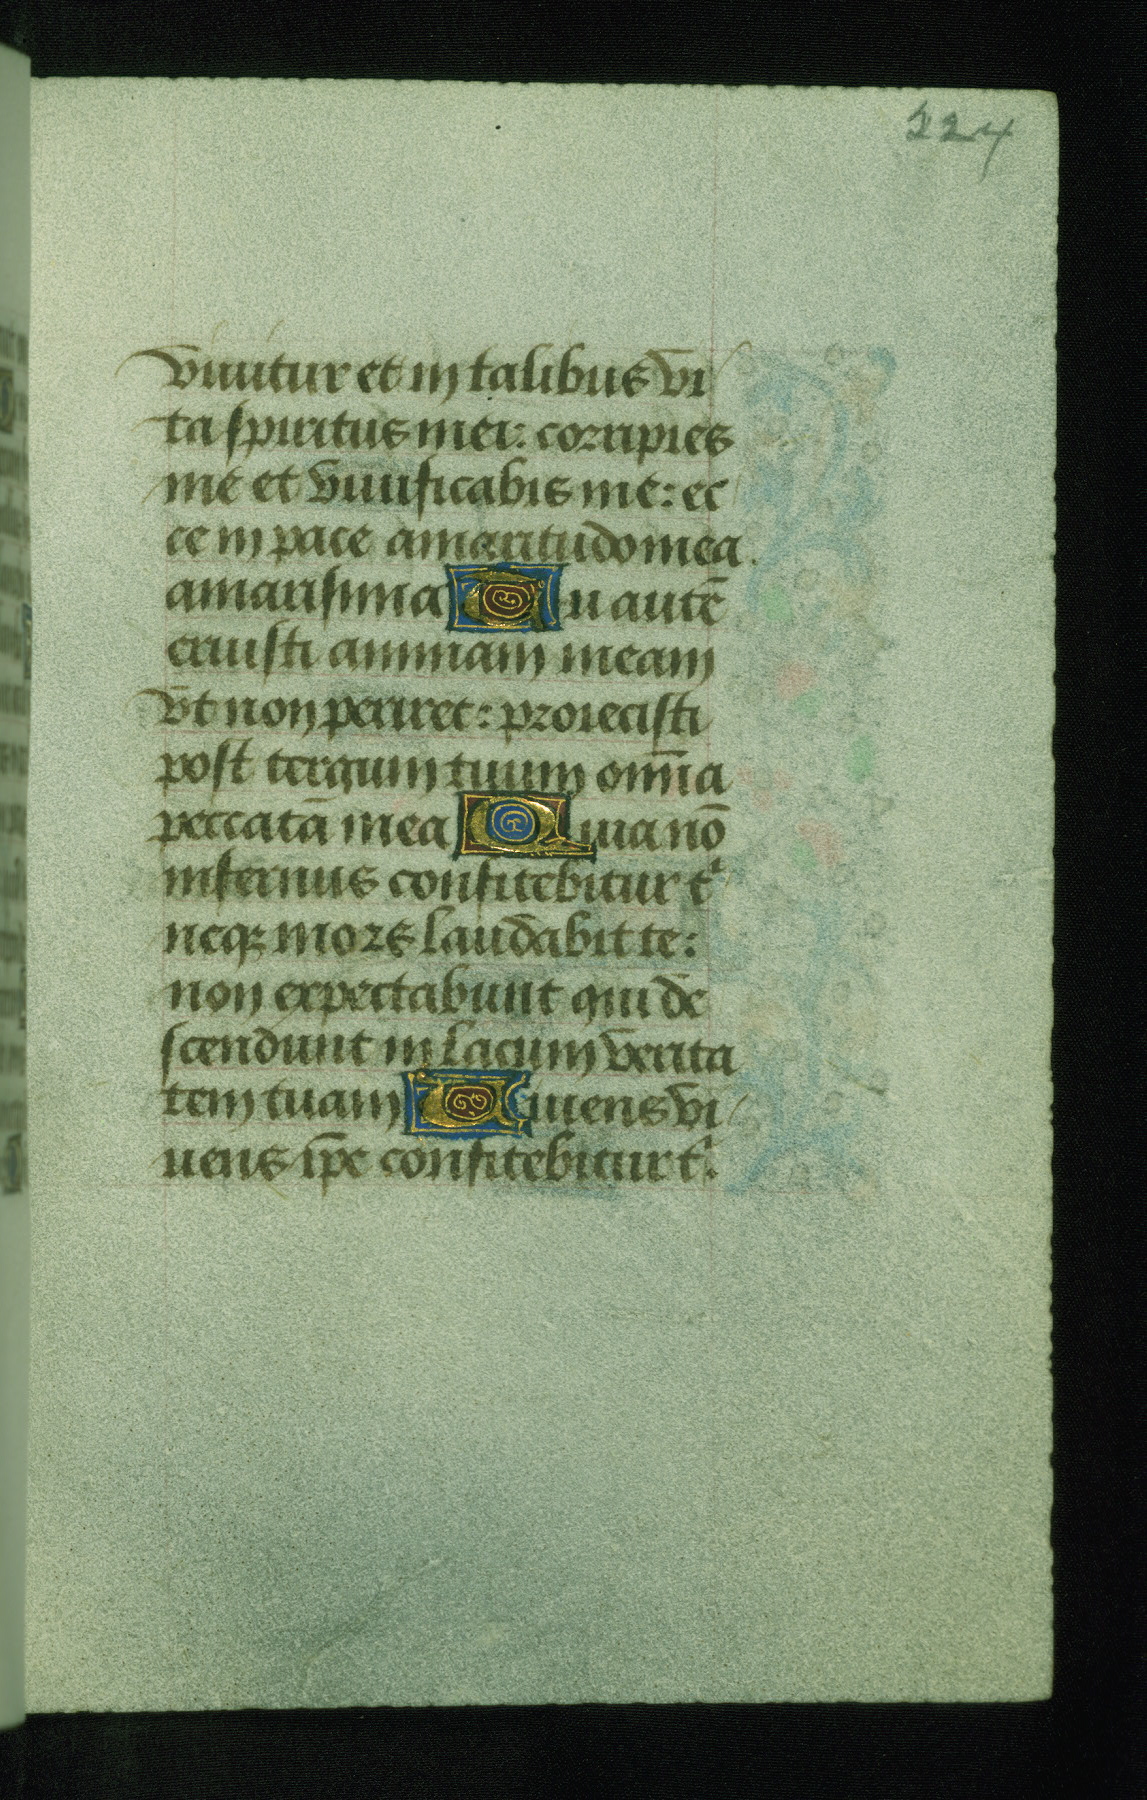 224
viuitur et in talibus vi
ta spiritus mei: corripies
me et viuificabis me: ec
ce in pace amaritudo mea
amarissima Tu autē
eruisti animam meam
vt non periret: proiecisti
post tergum tuum omīa
peccata mea Quia nō
infernus confitebitur tⁱ
neqꝫ mors laudabit te:
non expectabunt qui de
scendunt in lacum verita
tem tuam Viuens vi
uens ip̄e confitebitur tⁱ.